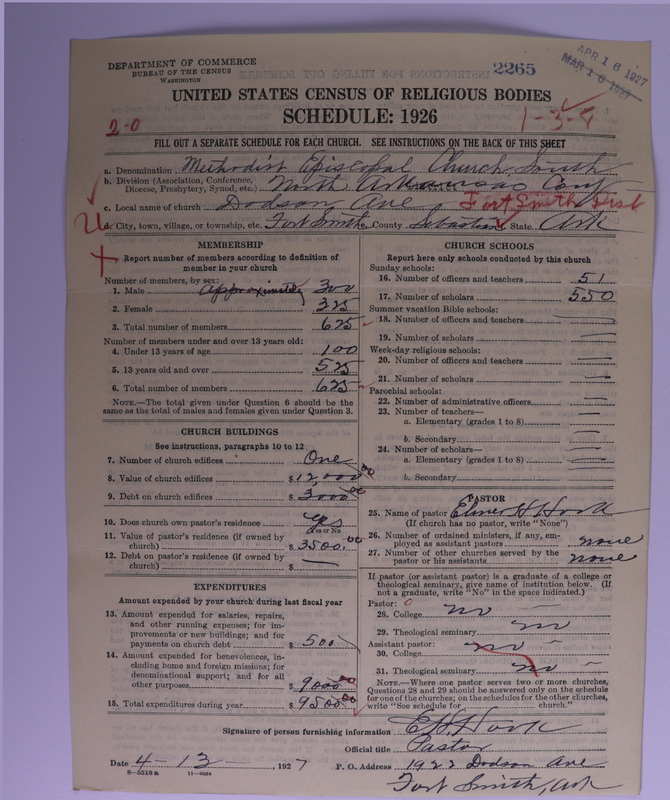 DEPARTMENT OF COMMERCE
BUREAU OF THE CENSUS
WASHINGTON
2265
APR 16 1927
MAR 16 1927
UNITED STATES CENSUS OF RELIGIOUS BODIES
SCHEDULE: 1926
2-0
1-3-
FILL OUT A SEPARATE SCHEDULE FOR EACH CHURCH. SEE INSTRUCTIONS ON THE BACK OF THIS SHEET
a. Denomination Methodist Episcopal Church, South
b. Division (Association, Conference, Diocese, Presbytery, Synod, etc.) North Arkansas Conf
c. Local name of church Dodson Ave Fort Smith Dist
d. City, town, village, or township, etc. Fort Smith e. County Sebastian State Ark
MEMBERSHIP
Report number of members according to definition of
member in your church
Number of members, by sex:
1. Male approximately 300
2. Female 325
3. Total number of members 625
Number of members under and over 13 years old:
4. Under 13 years of age 100
5. 13 years old and over 525
6. Total number of members 625
NOTE.—The total given under Question 6 should be the
same as the total of males and females given under Question 3.
CHURCH BUILDINGS
See instructions, paragraphs 10 to 12
7. Number of church edifices One
8. Value of church edifices $12,000 00
9. Debt on church edifices $3000 00
10. Does church own pastor's residence Yes
Yes or No
11. Value of pastor's residence (if owned by
church) $3500.00
12. Debt on pastor's residence (if owned by
church) $ —
EXPENDITURES
Amount expended by your church during last fiscal year
13. Amount expended for salaries, repairs,
and other running expenses; for im-
provements or new buildings; and for
payments on church debt $500
14. Amount expended for benevolences, in-
cluding home and foreign missions; for
denominational support; and for all
other purposes $9000 00
15. Total expenditures during year $9500 00
CHURCH SCHOOLS
Report here only schools conducted by this church
Sunday schools:
16. Number of officers and teachers 51
17. Number of scholars 550
Summer vacation Bible schools:
18. Number of officers and teachers —
19. Number of scholars —
Week-day religious schools:
20. Number of officers and teachers —
21. Number of scholars —
Parochial schools:
22. Number of administrative officers —
23. Number of teachers—
a. Elementary (grades 1 to 8) —
b. Secondary —
24. Number of scholars—
a. Elementary (grades 1 to 8) —
b. Secondary —
PASTOR
25. Name of pastor Elmer H Hook
(If church has no pastor, write "None")
26. Number of ordained ministers, if any, em-
ployed as assistant pastors none
27. Number of other churches served by the
pastor or his assistants none
If pastor (or assistant pastor) is a graduate of a college or
theological seminary, give name of institution below. (If
not a graduate, write "No" in the space indicated.)
Pastor:
28. College no
29. Theological seminary no
Assistant pastor:
30. College no
31. Theological seminary no
NOTE.—Where one pastor serves two or more churches,
Questions 28 and 29 should be answered only on the schedule
for one of the churches; on the schedules for the other churches,
write "See schedule for church."
Signature of person furnishing information E H Hook
Official title Pastor
Date 4-13, 1927 P. O. Address 1922 Dodson Ave
8-5518a 11-9084 Fort Smith, Ark